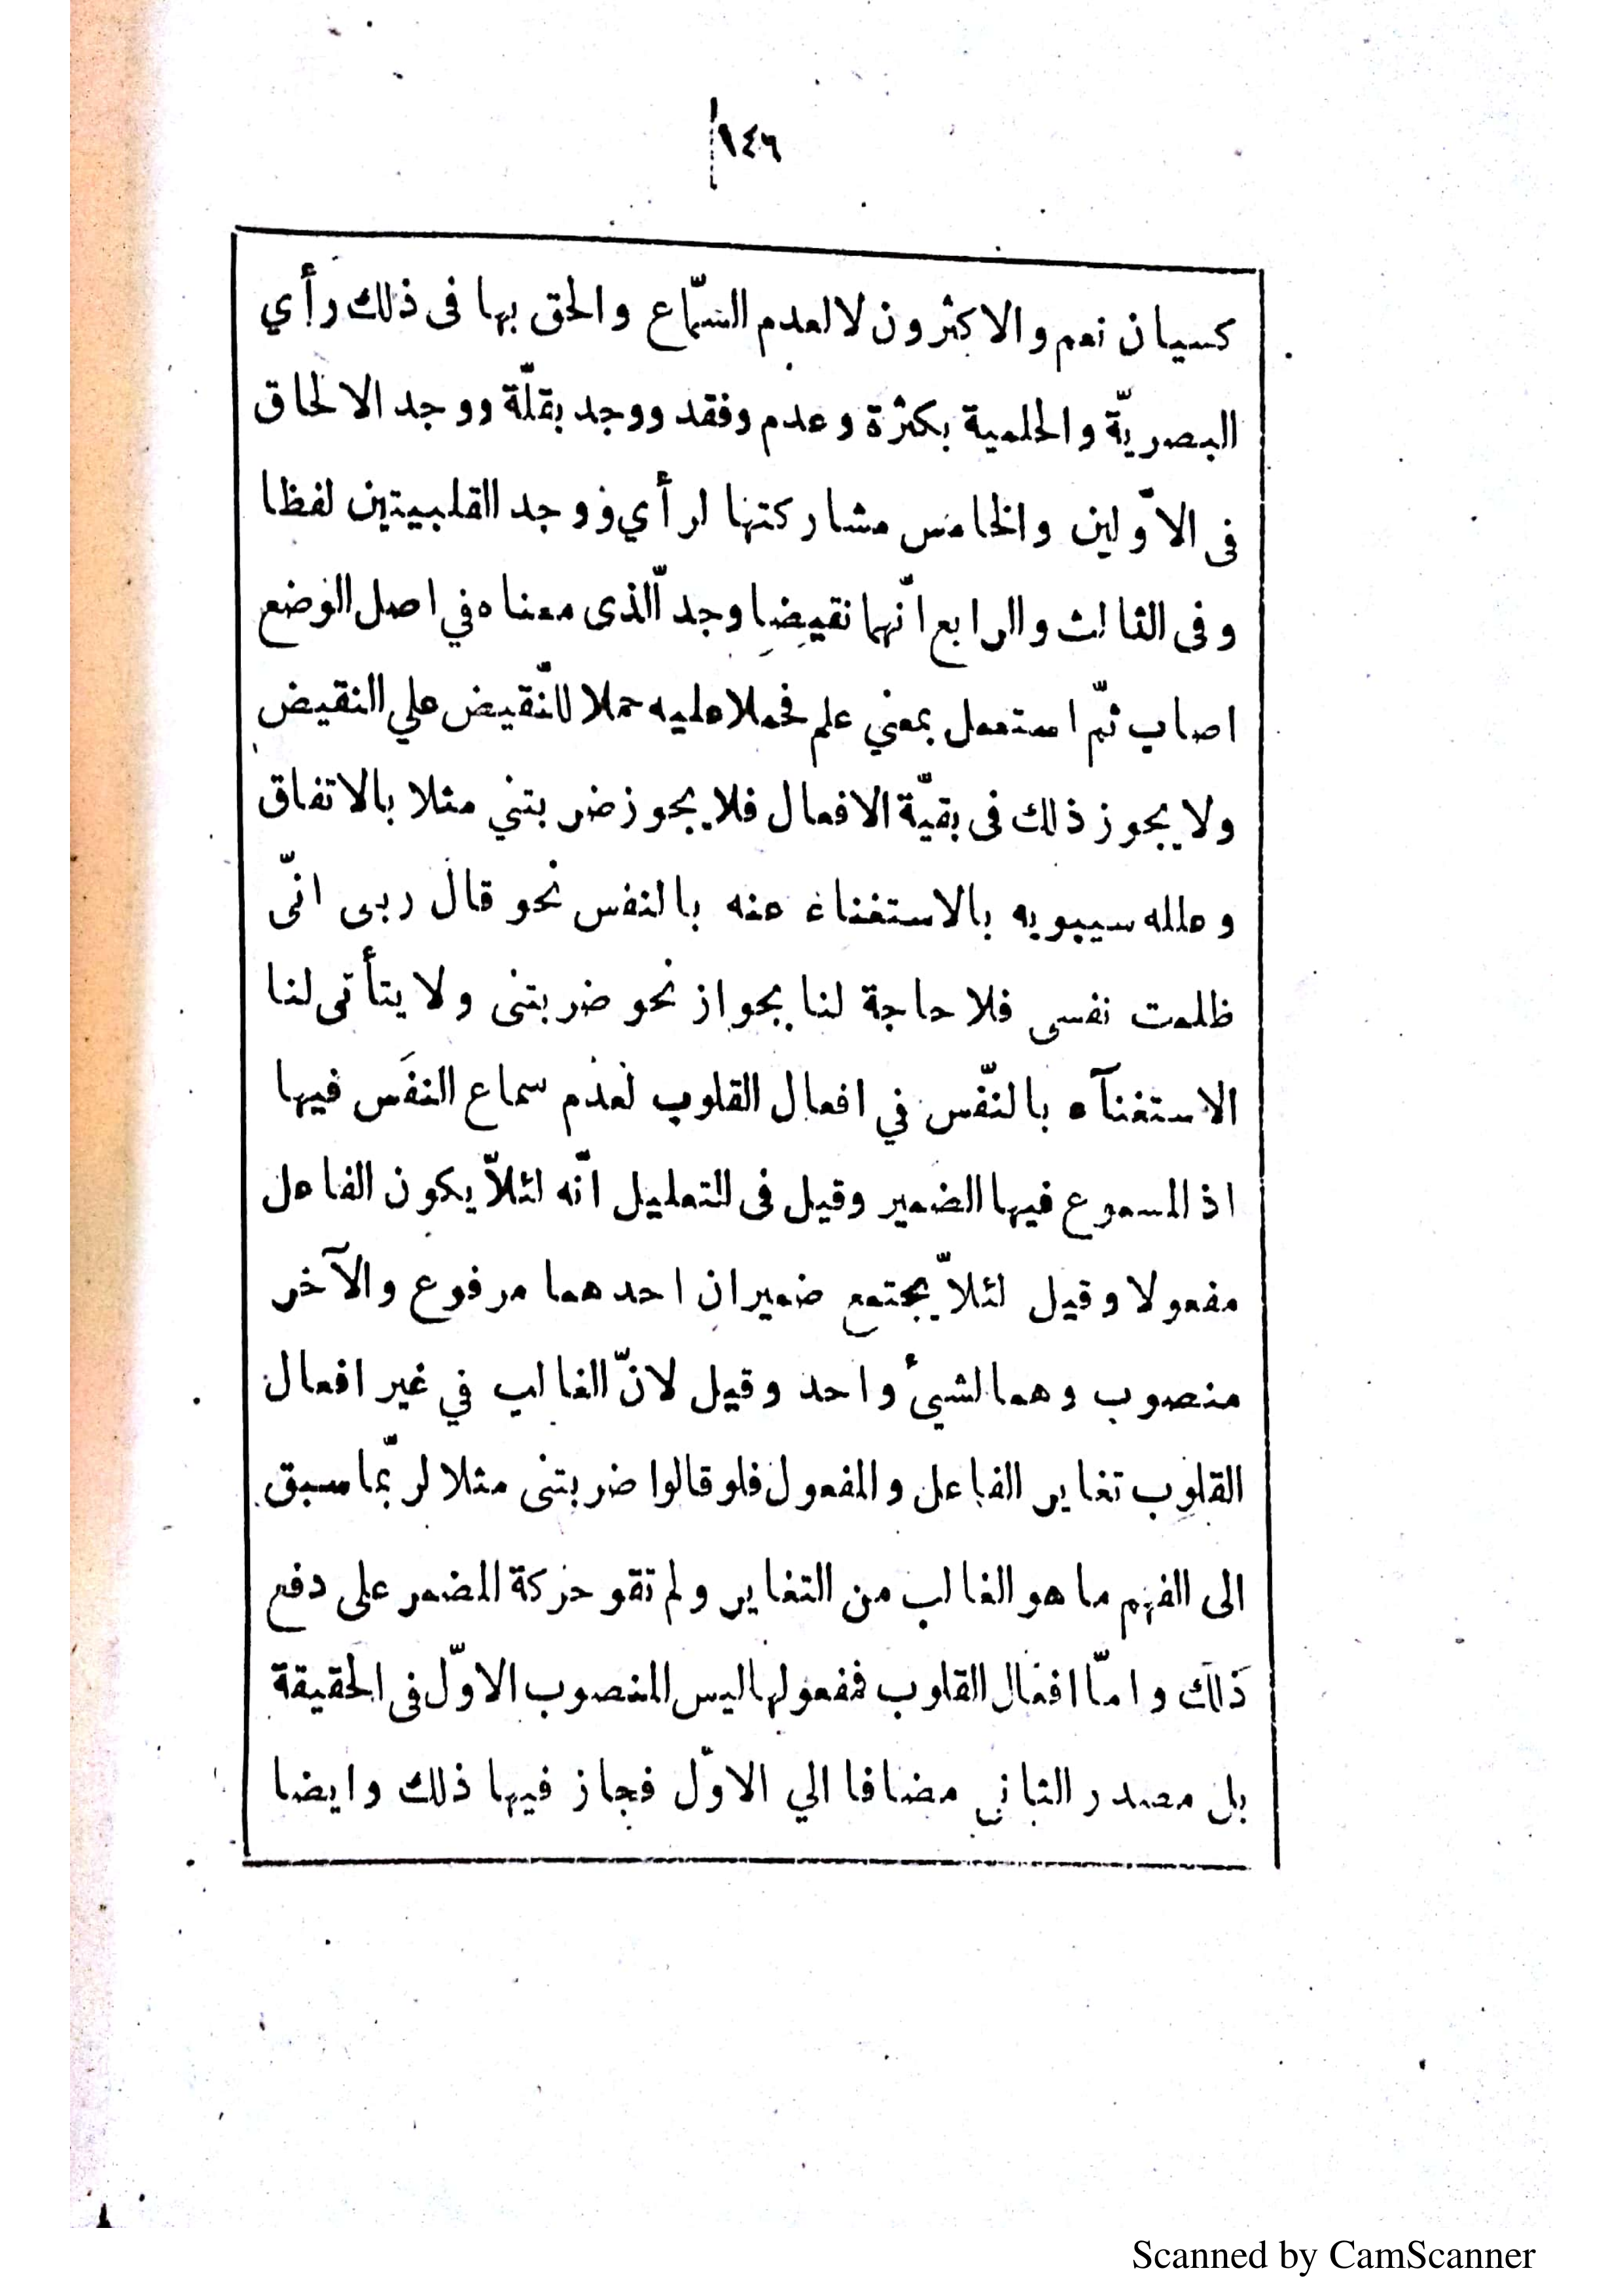 ٩٤٦
كسيان نعم والاكثرون لا لعدم السّماع والحق بها فى ذلك رأي
البصريّة والحلمية بكثرة وعدم وفقد ووجد بقلّة ووجد الالحاق
فى الاوّلين والخامس مشاركتها لرأي ووجد القلبيتين لفظا
وفى الثالث والرابع انّهما نقيضا وجد الّذى معناه في اصل الوضع
اصاب ثمّ استعمل بمعني علم فحملا عليه حملا للنّقيض علي النقيض
ولا يجوز ذلك فى بقيّة الافعال فلا يجوز ضربتني مثلا بالاتفاق
وعلله سيبويه بالاستغناء عنه بالنفس نحو قال ربى انّى
ظلمت نفسى فلا حاجة لنا بجواز نحو ضربتنى ولا يتأتى لنا
الاستغنآء بالنّفس في افعال القلوب لعدم سماع النفس فيها
اذ المسموع فيها الضمير وقيل فى التعليل انّه لئلاّ يكون الفاعل
مفعولا وقيل لئلاّ يجتمع ضميران احدهما مرفوع والآخر
منصوب وهما لشيئ واحد وقيل لانّ الغالب في غير افعال
القلوب تغاير الفاعل والمفعول فلو قالوا ضربتنى مثلا لربّما سبق
الى الفهم ما هو الغالب من التغاير ولم تقو حركة المضمر على دفع
ذلك وامّا افعال القلوب فمفعولها ليس المنصوب الاوّل فى الحقيقة
بل مصدر الثانى مضافا الي الاوّل فجاز فيها ذلك وايضا
Scanned by CamScanner